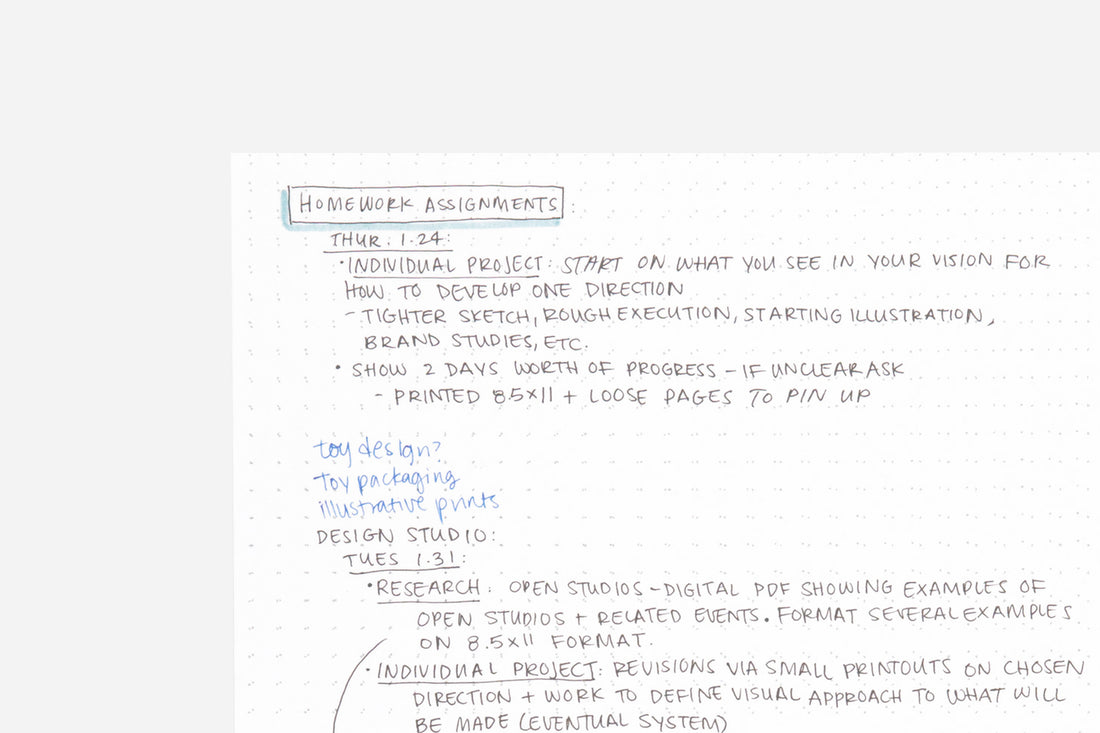 HOMEWORK ASSIGNMENTS:
THUR. 1.24:
• INDIVIDUAL PROJECT: START ON WHAT YOU SEE IN YOUR VISION FOR
HOW TO DEVELOP ONE DIRECTION
- TIGHTER SKETCH, ROUGH EXECUTION, STARTING ILLUSTRATION,
BRAND STUDIES, ETC.
• SHOW 2 DAYS WORTH OF PROGRESS - IF UNCLEAR ASK
- PRINTED 8.5x11 + LOOSE PAGES TO PIN UP
toy design?
Toy packaging
illustrative prints
DESIGN STUDIO:
TUES 1.31:
• RESEARCH: OPEN STUDIOS - DIGITAL PDF SHOWING EXAMPLES OF
OPEN STUDIOS + RELATED EVENTS. FORMAT SEVERAL EXAMPLES
ON 8.5x11 FORMAT.
• INDIVIDUAL PROJECT: REVISIONS VIA SMALL PRINTOUTS ON CHOSEN
DIRECTION + WORK TO DEFINE VISUAL APPROACH TO WHAT WILL
BE MADE (EVENTUAL SYSTEM)